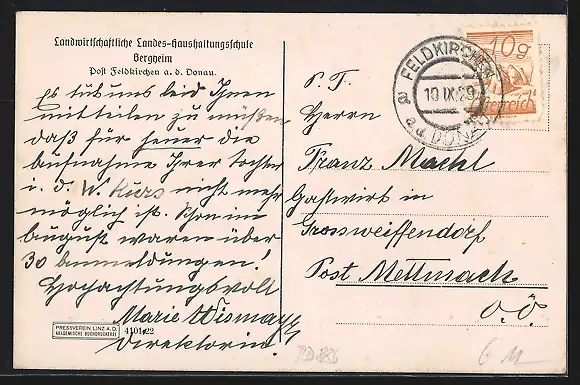 Landwirtschaftliche Landes-Haushaltungsschule
Bergheim
Post Feldkirchen a. d. Donau.
Es tut uns leid Ihnen
mitteilen zu müßen
daß für heuer die
Aufnahme Ihrer Tochter
i. d. W. Kurs nicht mehr
möglich ist. Schon im
August waren über
30 Anmeldungen!
Hochachtungsvoll
Marie Wismayr
Direktorin.
PRESSVEREIN LINZ A. D.
AKADEMISCHE BUCHDRUCKEREI
4101 22
10 g
FELDKIRCHEN
10 IX 29
a. d. DONAU
P. T.
Herrn
Franz Mackl
Gastwirt in
Grossweiffendorf
Post Mettmach
O. Ö.
PD 886
6 M